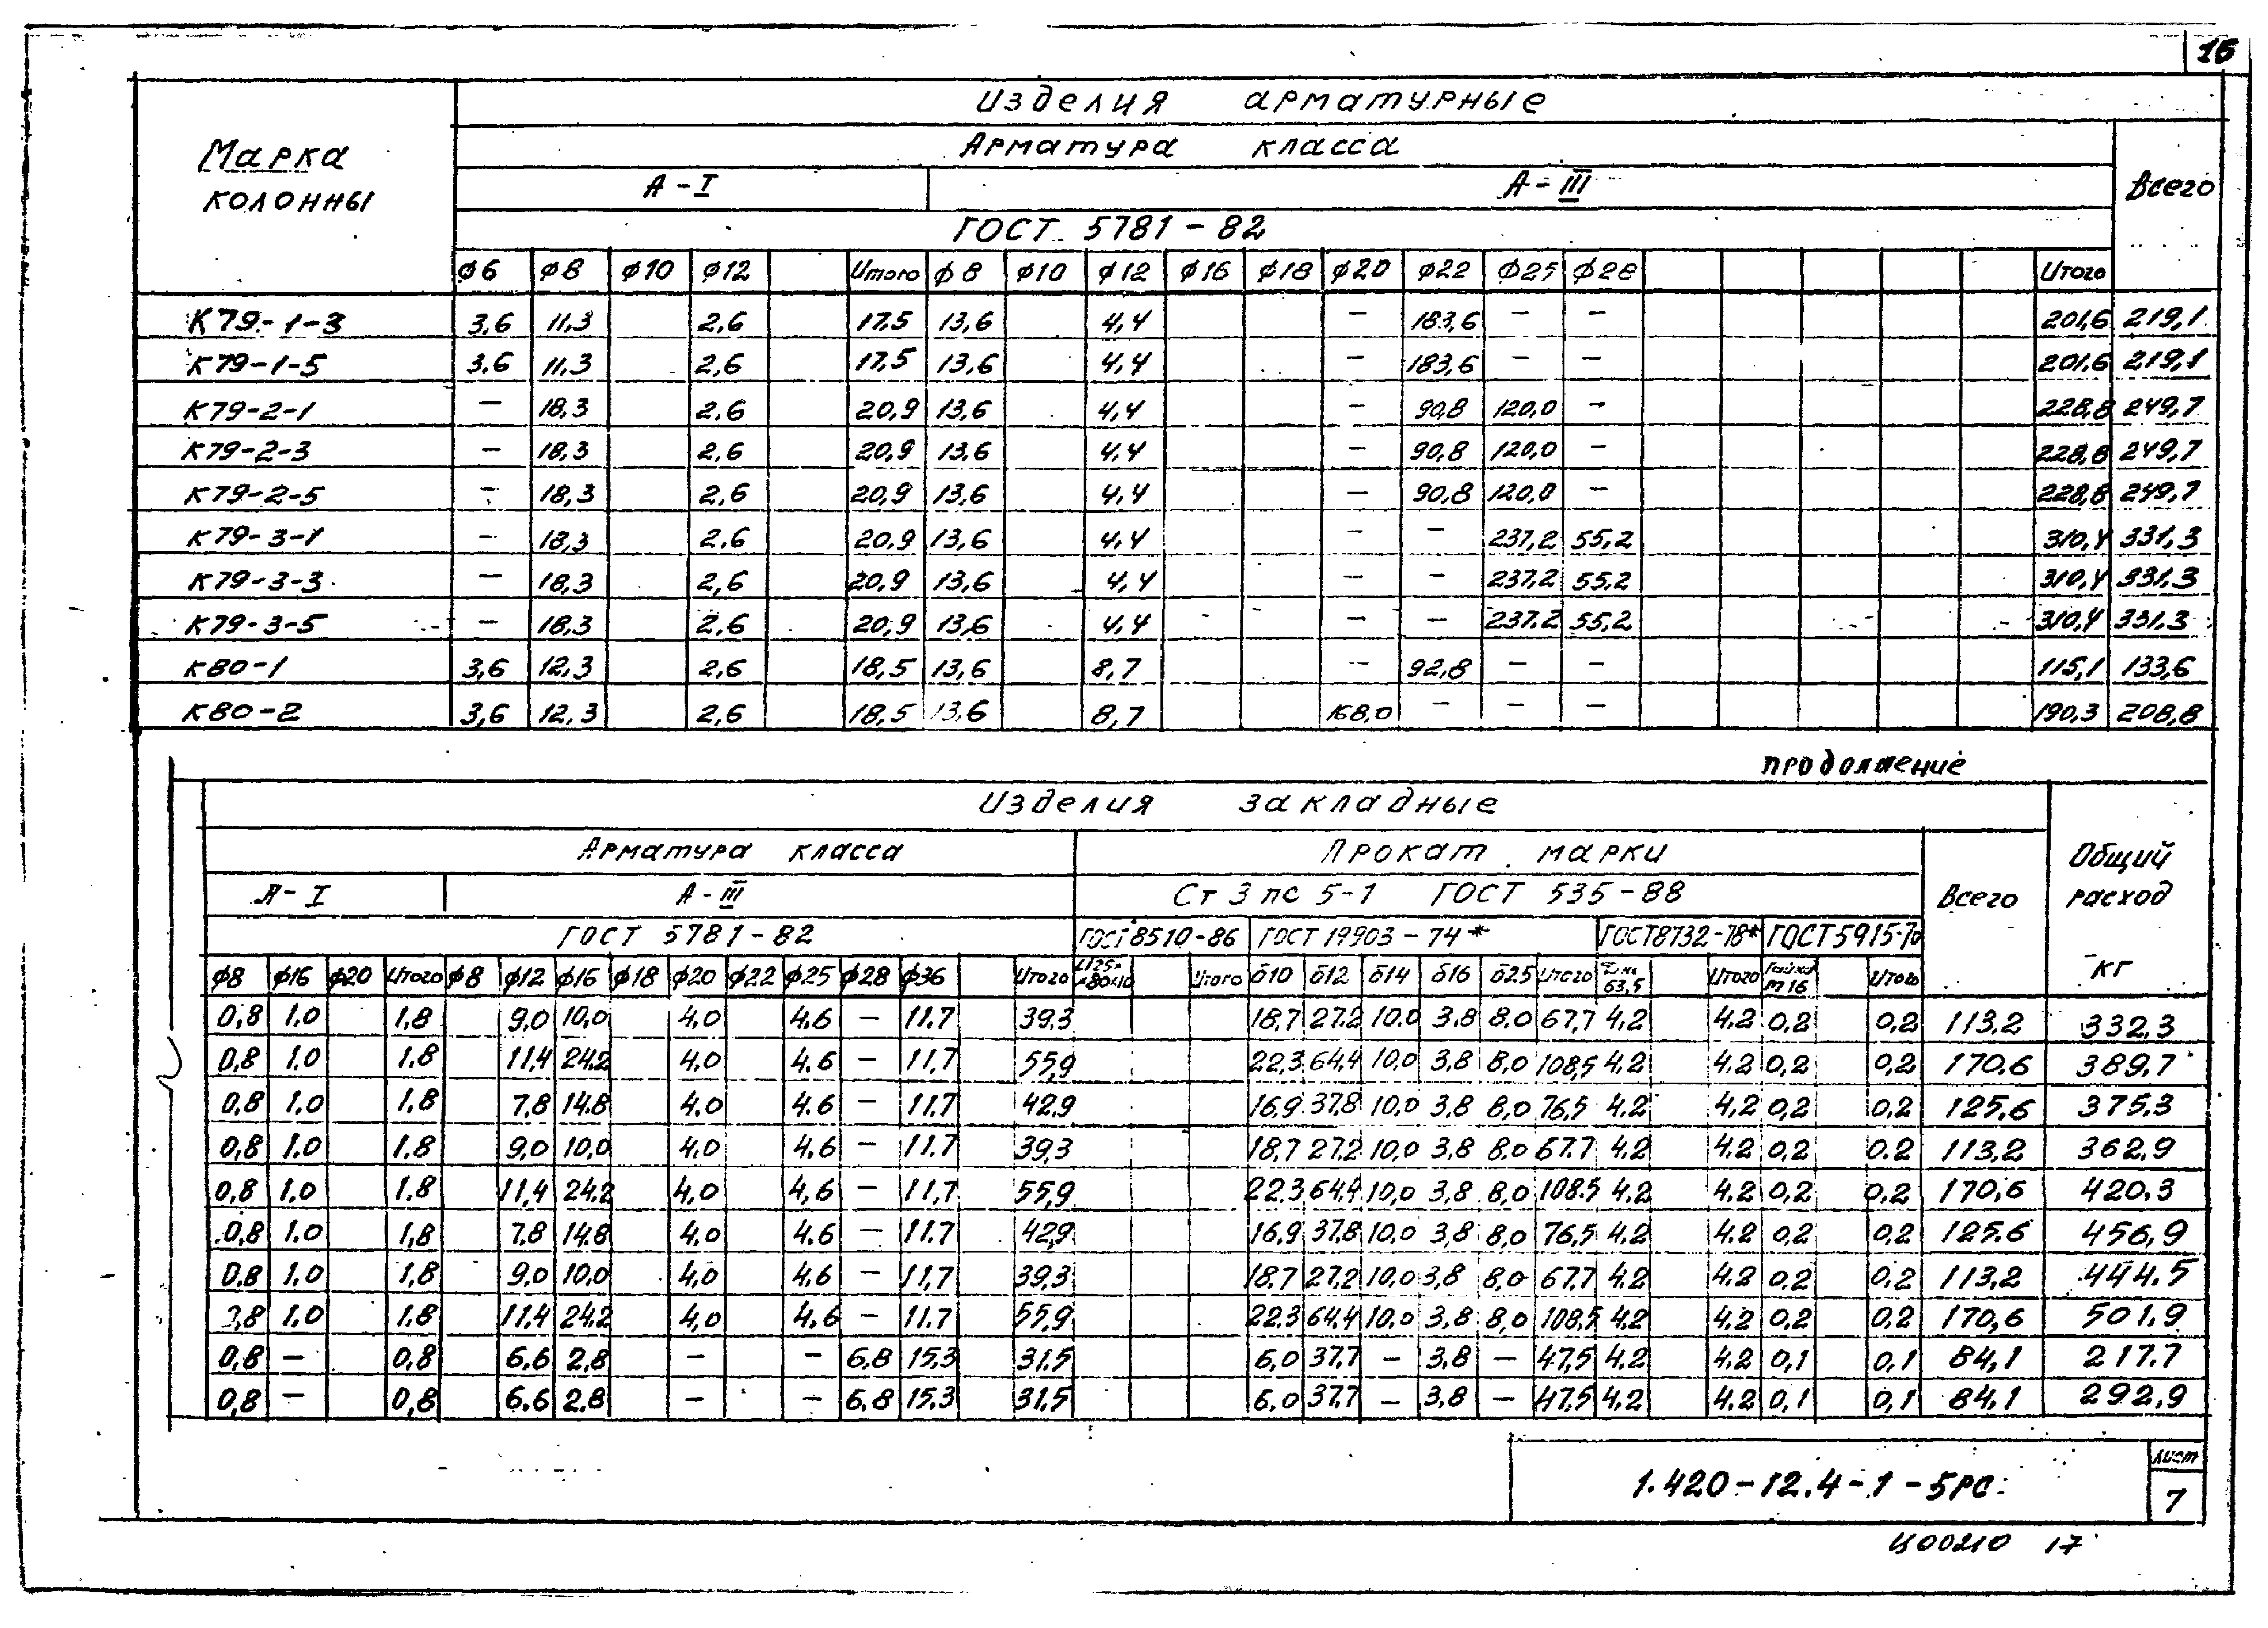 16
Изделия арматурные
Марка колонны
Арматура класса
Всего
А-I А-III
ГОСТ 5781-82
ф6 ф8 ф10 ф12 Итого ф8 ф10 ф12 ф16 ф18 ф20 ф22 ф25 ф28 Итого
К79-1-3 3,6 11,3 2,6 17,5 13,6 4,4 – 183,6 – – 201,6 219,1
К79-1-5 3,6 11,3 2,6 17,5 13,6 4,4 – 183,6 – – 201,6 219,1
К79-2-1 – 18,3 2,6 20,9 13,6 4,4 – 90,8 120,0 – 228,8 249,7
К79-2-3 – 18,3 2,6 20,9 13,6 4,4 – 90,8 120,0 – 228,8 249,7
К79-2-5 – 18,3 2,6 20,9 13,6 4,4 – 90,8 120,0 – 228,8 249,7
К79-3-1 – 18,3 2,6 20,9 13,6 4,4 – – 237,2 55,2 310,4 331,3
К79-3-3 – 18,3 2,6 20,9 13,6 4,4 – – 237,2 55,2 310,4 331,3
К79-3-5 – 18,3 2,6 20,9 13,6 4,4 – – 237,2 55,2 310,4 331,3
К80-1 3,6 12,3 2,6 18,5 13,6 8,7 – 92,8 – – 115,1 133,6
К80-2 3,6 12,3 2,6 18,5 13,6 8,7 168,0 – – – 190,3 208,8
продолжение
Изделия закладные
Арматура класса Прокат марки
Общий расход кг
А-I А-III Ст 3 пс 5-1 ГОСТ 535-88 Всего
ГОСТ 5781-82 ГОСТ 8510-86 ГОСТ 19903-74* ГОСТ 8732-78* ГОСТ 5915-70
ф8 ф16 ф20 Итого ф8 ф12 ф16 ф18 ф20 ф22 ф25 ф28 ф36 Итого L125× ×80×10 Итого δ10 δ12 δ14 δ16 δ25 Итого 63,5 Итого Гайка М16 Итого
0,8 1,0 1,8 9,0 10,0 4,0 4,6 – 11,7 39,3 18,7 27,2 10,0 3,8 8,0 67,7 4,2 4,2 0,2 0,2 113,2 332,3
0,8 1,0 1,8 11,4 24,2 4,0 4,6 – 11,7 55,9 22,3 64,4 10,0 3,8 8,0 108,5 4,2 4,2 0,2 0,2 170,6 389,7
0,8 1,0 1,8 7,8 14,8 4,0 4,6 – 11,7 42,9 16,9 37,8 10,0 3,8 8,0 76,5 4,2 4,2 0,2 0,2 125,6 375,3
0,8 1,0 1,8 9,0 10,0 4,0 4,6 – 11,7 39,3 18,7 27,2 10,0 3,8 8,0 67,7 4,2 4,2 0,2 0,2 113,2 362,9
0,8 1,0 1,8 11,4 24,2 4,0 4,6 – 11,7 55,9 22,3 64,4 10,0 3,8 8,0 108,5 4,2 4,2 0,2 0,2 170,6 420,3
0,8 1,0 1,8 7,8 14,8 4,0 4,6 – 11,7 42,9 16,9 37,8 10,0 3,8 8,0 76,5 4,2 4,2 0,2 0,2 125,6 456,9
0,8 1,0 1,8 9,0 10,0 4,0 4,6 – 11,7 39,3 18,7 27,2 10,0 3,8 8,0 67,7 4,2 4,2 0,2 0,2 113,2 444,5
0,8 1,0 1,8 11,4 24,2 4,0 4,6 – 11,7 55,9 22,3 64,4 10,0 3,8 8,0 108,5 4,2 4,2 0,2 0,2 170,6 501,9
0,8 – 0,8 6,6 2,8 – – 6,8 15,3 31,5 6,0 37,7 – 3,8 – 47,5 4,2 4,2 0,1 0,1 84,1 217,7
0,8 – 0,8 6,6 2,8 – – 6,8 15,3 31,5 6,0 37,7 – 3,8 – 47,5 4,2 4,2 0,1 0,1 84,1 292,9
1.420-12.4-1-5РС
лист
7
Ц00210 17